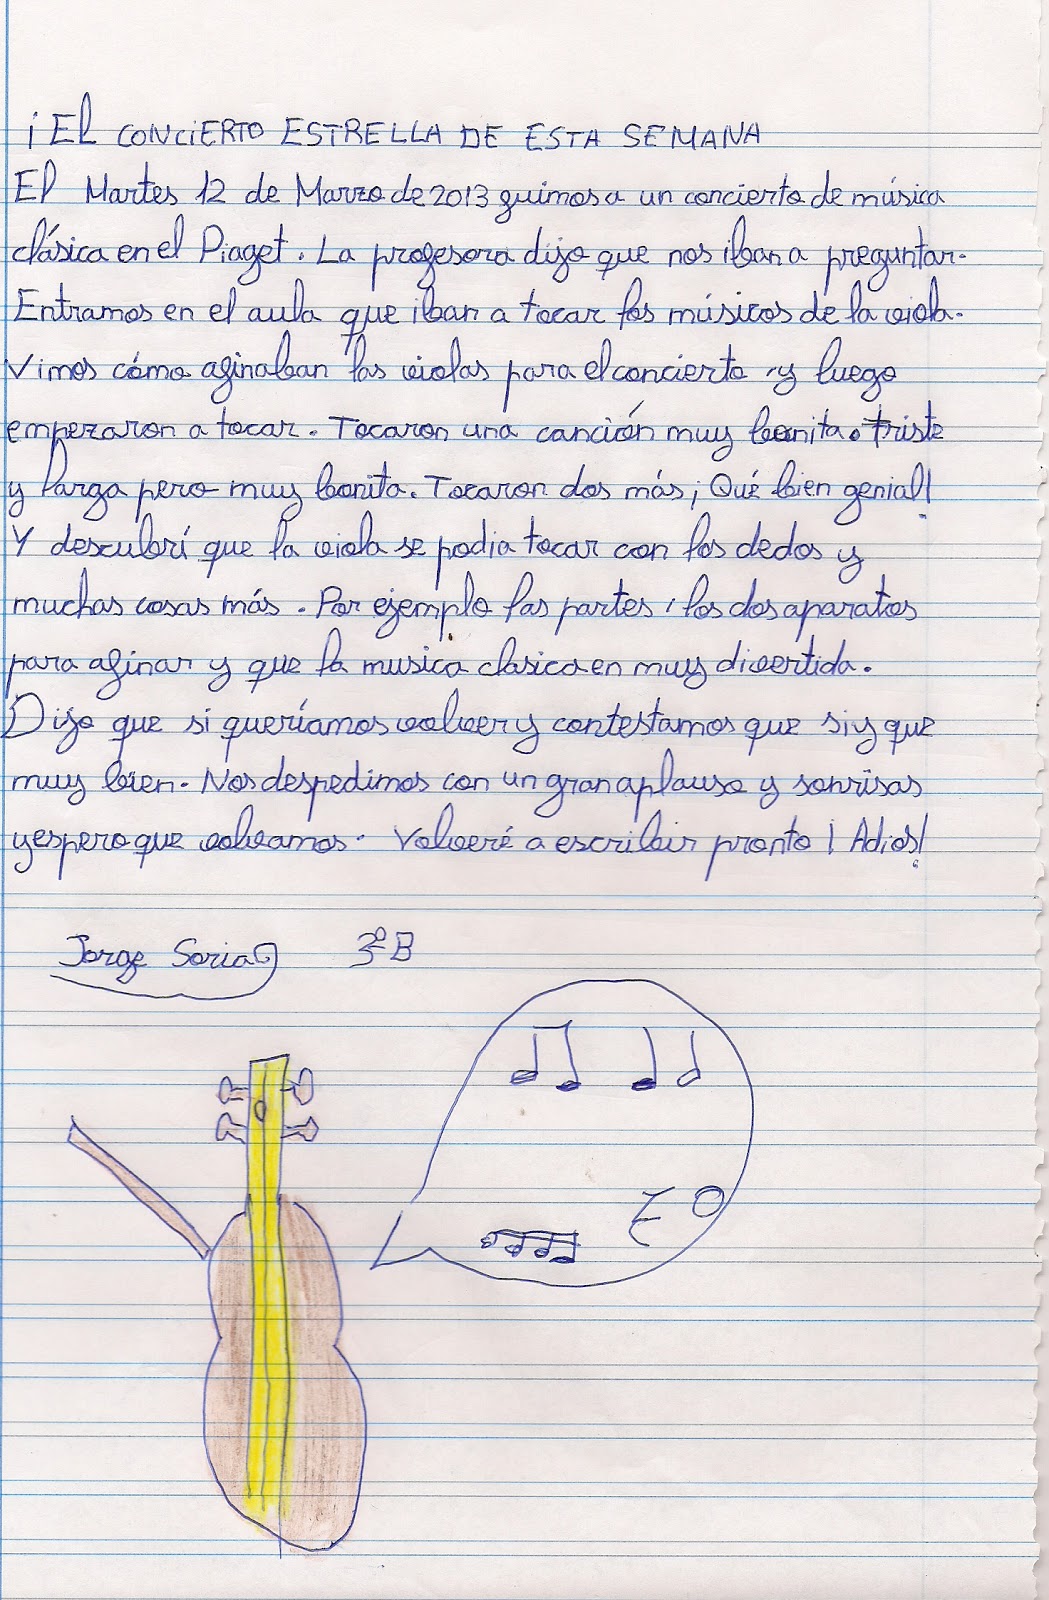 ¡El CONCiERTO ESTRELLA DE ESTA SEMANA
El Martes 12 de Marzo de 2013 fuimos a un concierto de música
clásica en el Piaget. La profesora dijo que nos iban a preguntar.
Entramos en el aula que iban a tocar los músicos de la viola.
Vimos cómo afinaban las violas para el concierto y luego
empezaron a tocar. Tocaron una canción muy bonita. triste
y larga pero muy bonita. Tocaron dos más ¡Qué bien genial!
Y descubrí que la viola se podia tocar con los dedos y
muchas cosas más. Por ejemplo las partes, los dos aparatos
para afinar y que la musica clasica en muy divertida.
Dijo que si queríamos volver y contestamos que si y que
muy bien. Nos despedimos con un gran aplauso y sonrisas
y espero que volvamos. Volveré a escribir pronto ¡Adios!
Jorge Soria 3ºB